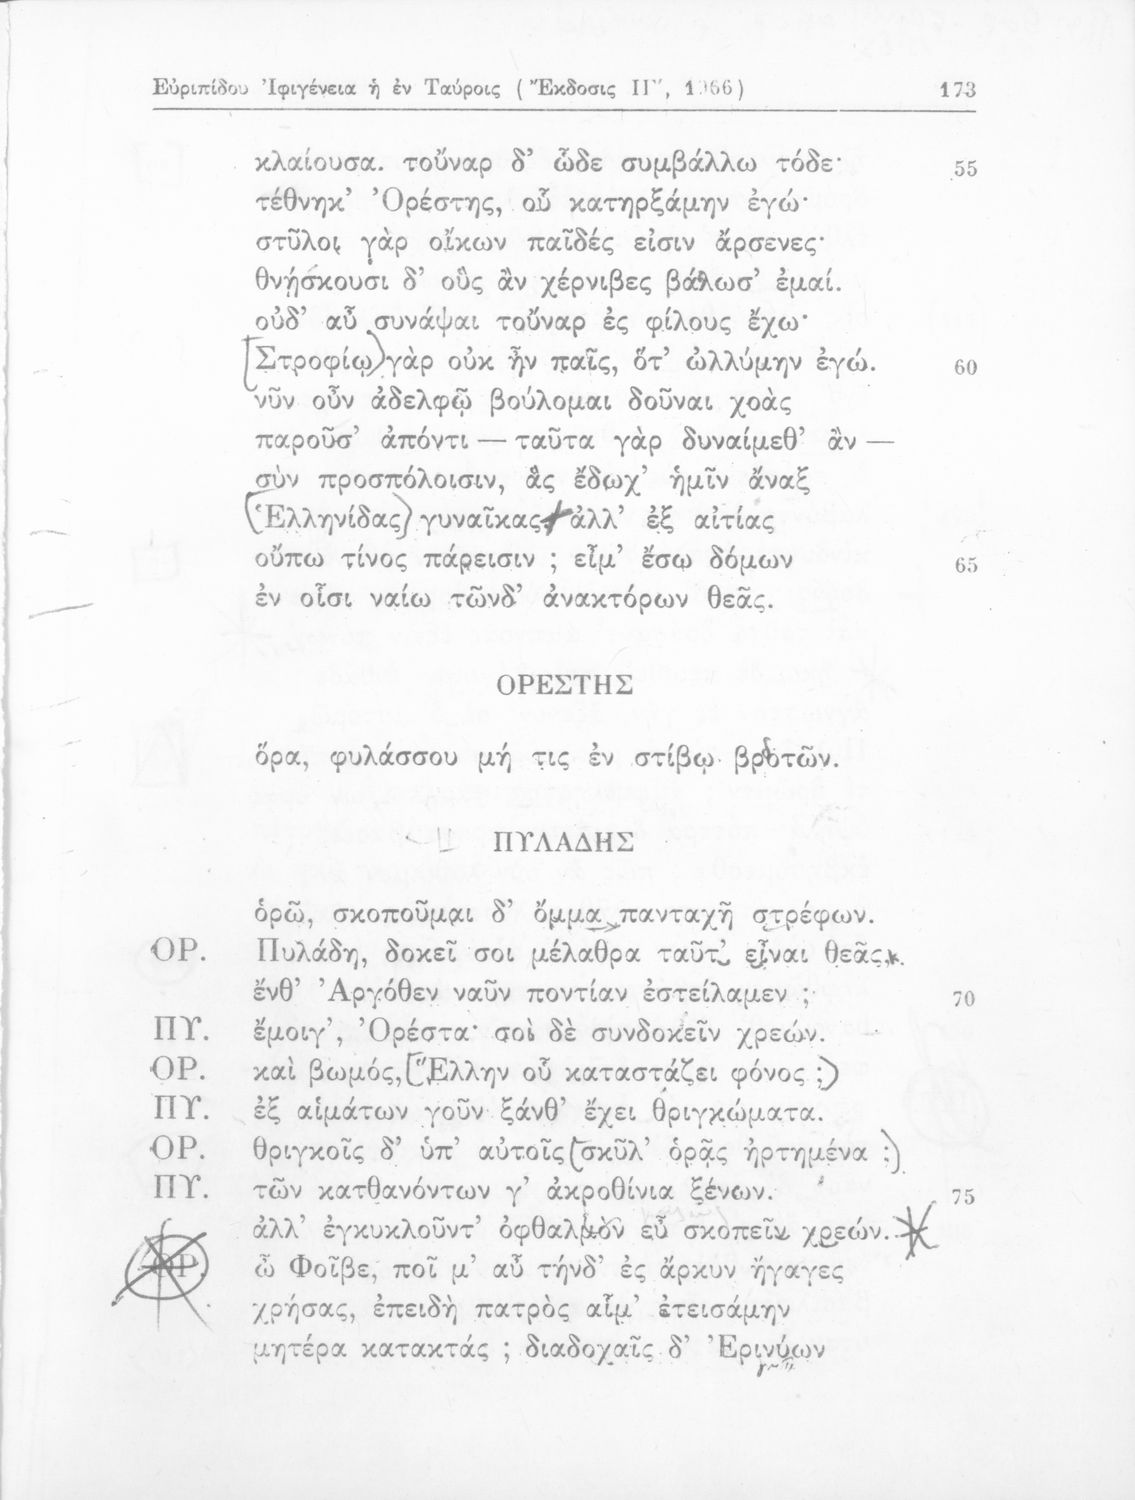 Εὐριπίδου Ἰφιγένεια ἡ ἐν Ταύροις (Ἔκδοσις Π", 1966) 173
κλαίουσα. τοὔναρ δ’ ὧδε συμβάλλω τόδε· 55
τέθνηκ’ Ὀρέστης, οὗ κατηρξάμην ἐγώ·
στῦλοι γὰρ οἴκων παῖδές εἰσιν ἄρσενες·
θνῄσκουσι δ’ οὓς ἂν χέρνιβες βάλωσ’ ἐμαί.
οὐδ’ αὖ συνάψαι τοὔναρ ἐς φίλους ἔχω·
Στροφίῳ γὰρ οὐκ ἦν παῖς, ὅτ’ ὠλλύμην ἐγώ. 60
νῦν οὖν ἀδελφῷ βούλομαι δοῦναι χοὰς
παροῦσ’ ἀπόντι — ταῦτα γὰρ δυναίμεθ’ ἂν —
σὺν προσπόλοισιν, ἃς ἔδωχ’ ἡμῖν ἄναξ
Ἑλληνίδας γυναῖκας. ἀλλ’ ἐξ αἰτίας
οὔπω τίνος πάρεισιν ; εἶμ’ ἔσω δόμων 65
ἐν οἷσι ναίω τῶνδ’ ἀνακτόρων θεᾶς.
ΟΡΕΣΤΗΣ
ὅρα, φυλάσσου μή τις ἐν στίβῳ βροτῶν.
ΠΥΛΑΔΗΣ
ὁρῶ, σκοποῦμαι δ’ ὄμμα πανταχῆ στρέφων.
ΟΡ. Πυλάδη, δοκεῖ σοι μέλαθρα ταῦτ’ εἶναι θεᾶς,
ἔνθ’ Ἀργόθεν ναῦν ποντίαν ἐστείλαμεν ; 70
ΠΥ. ἔμοιγ’, Ὀρέστα· σοὶ δὲ συνδοκεῖν χρεών.
ΟΡ. καὶ βωμός, Ἕλλην οὗ καταστάζει φόνος ;
ΠΥ. ἐξ αἱμάτων γοῦν ξάνθ’ ἔχει θριγκώματα.
ΟΡ. θριγκοῖς δ’ ὑπ’ αὐτοῖς σκῦλ’ ὁρᾷς ἠρτημένα ;
ΠΥ. τῶν κατθανόντων γ’ ἀκροθίνια ξένων. 75
ἀλλ’ ἐγκυκλοῦντ’ ὀφθαλμὸν εὖ σκοπεῖν χρεών.
ΟΡ. ὦ Φοῖβε, ποῖ μ’ αὖ τήνδ’ ἐς ἄρκυν ἤγαγες
χρήσας, ἐπειδὴ πατρὸς αἷμ’ ἐτεισάμην
μητέρα κατακτάς ; διαδοχαῖς δ’ Ἐρινύων